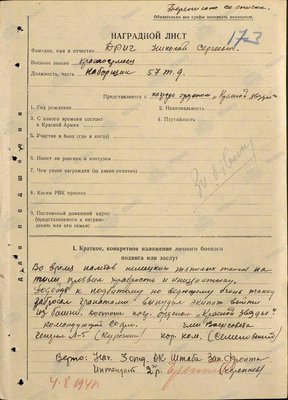 Переписано со списка.
Обязательно все графы заполнять полностью.
НАГРАДНОЙ ЛИСТ
173
Фамилия, имя и отчество Бриг Николай Сергеевич
Военное звание красноармеец
Должность, часть наборщик 57 т.д.
Представляется к награде орденом „Красной звезды"
1. Год рождения
2. Национальность
3. С какого времени состоит в Красной Армии
4. Партийность
5. Участие в боях (где и когда)
6. Имеет ли ранения и контузии
7. Чем ранее награжден (за какие отличия)
8. Каким РВК призван
9. Постоянный домашний адрес (представляемого к награждению или его семьи)
Для подшивки
I. Краткое, конкретное изложение личного боевого подвига или заслуг
Во время налетов немецких танков на
тылы, проявил храбрость и инициативу.
Подойдя к подбитому но ведущему огонь танку
забросал гранатами вынудил экипаж выйти
из башни. достоин нагр. ордена „Красной звезды"
командующий 20 арм. чл. Военсовета
генерал л-т (Курочкин) кор. ком. (Семеновский)
Верно: Нач. 3 отд. ОК Штаба Зап. Фронта
Интендант 2 р.
4.8.1941